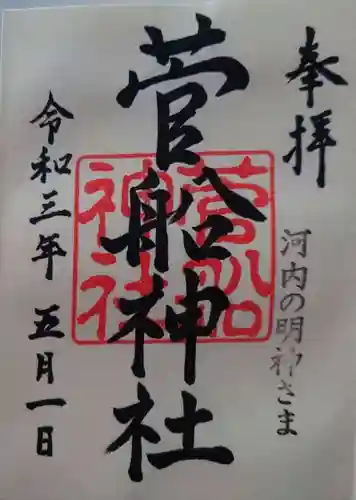 奉拝
河内の明神さま
菅船神社
菅船神社
令和三年五月一日